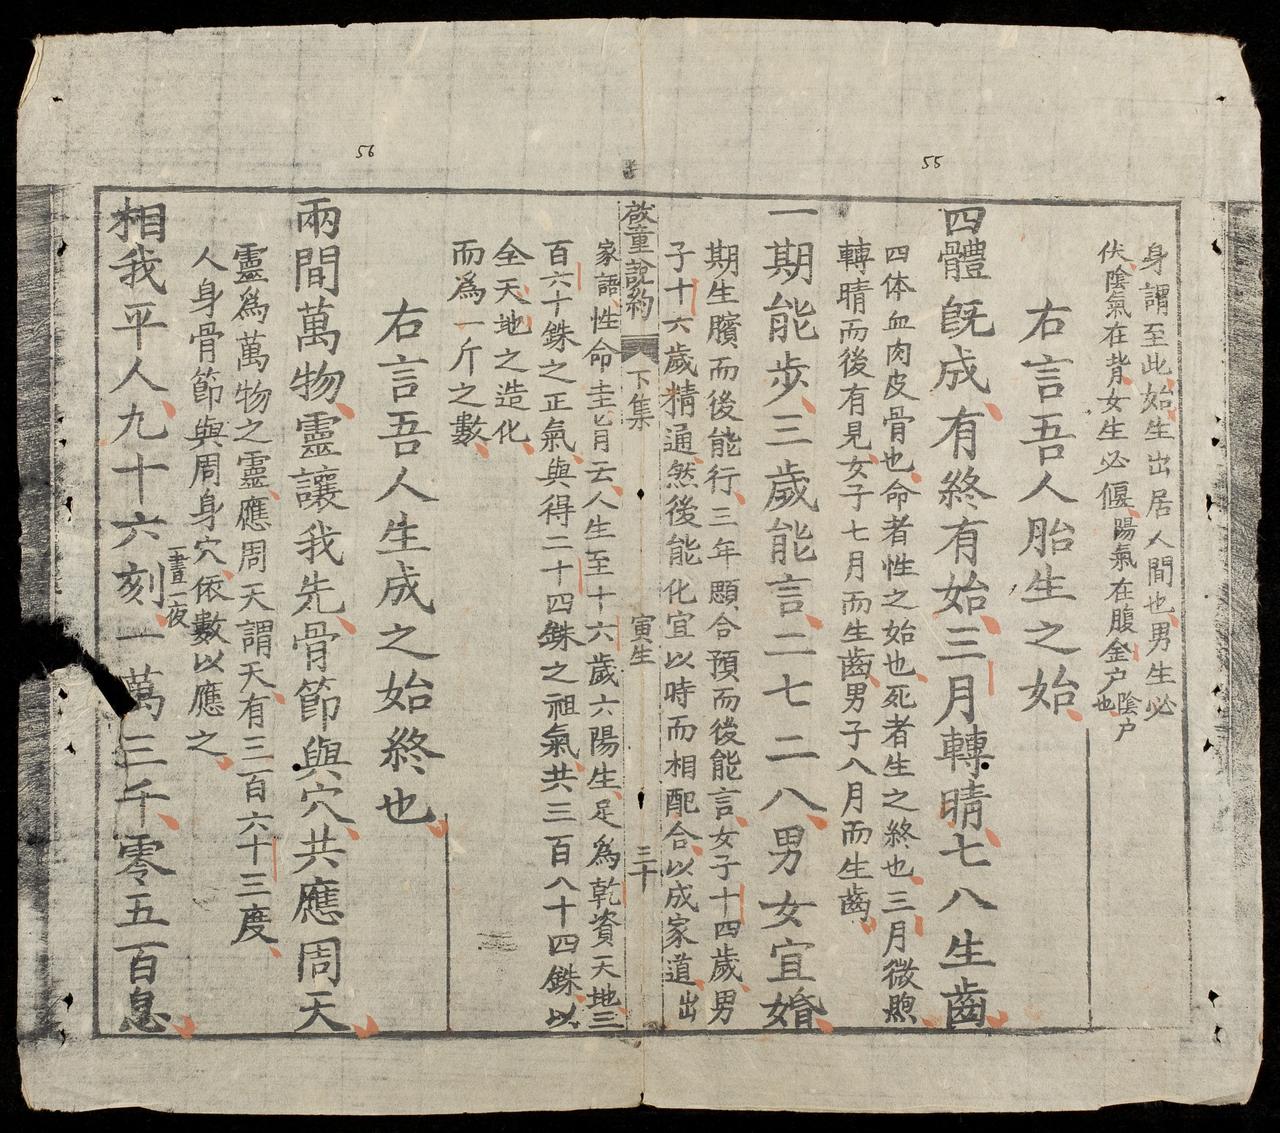 55
身謂至此始生出居人間也男生必
伏陰氣在背女生必偃陽氣在腹金户也陰户
右言吾人胎生之始
四體旣成有終有始三月轉睛七八生齒
四体血肉皮骨也命者性之始也死者生之終也三月微煦
轉睛而後有見女子七月而生齒男子八月而生齒
一期能步三歲能言二七二八男女宜婚
期生臏而後能行三年顋合預而後能言女子十四歲男
子十六歲精通然後能化宜以時而相配合以成家道出
啟童說約 下集 寅生 三十
家語性命圭旨云人生至十六歲六陽生足爲乾資天地三
百六十銖之正氣與得二十四銖之祖氣共三百八十四銖以
全天地之造化
而爲一斤之數
右言吾人生成之始終也
56
兩間萬物靈讓我先骨節與穴共應周天
靈爲萬物之靈應周天謂天有三百六十三度
人身骨節與周身穴依數以應之
相我平人九十六刻一晝一夜一萬三千零五百息